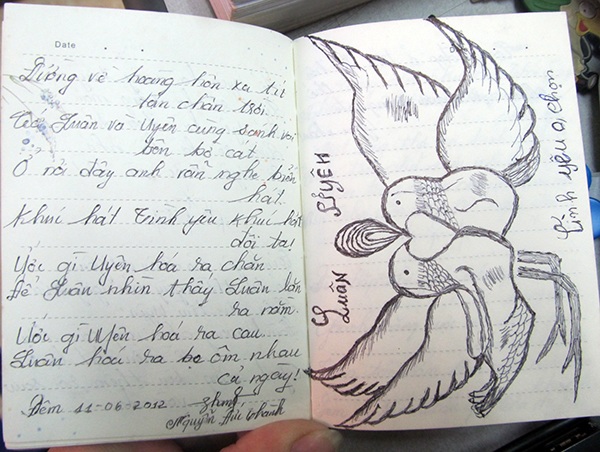 Date
Đường về hoàng hôn xa tít
tận chân trời
Có Luân và Uyên cùng sánh vai
bên bờ cát
Ở nơi đây anh vẫn nghe biển
hát.
Khúc hát tình yêu khúc hát
đôi ta!
Ước gì Uyên hoá ra chăn
Để Luân nhìn thấy Luân lăn
ra nằm.
Ước gì Uyên hoá ra cau
Luân hoá ra bẹ ôm nhau
cả ngày!
Đêm 11-06-2012
Nguyễn Đức Thành
LUYÊN
Luân
Tình yêu